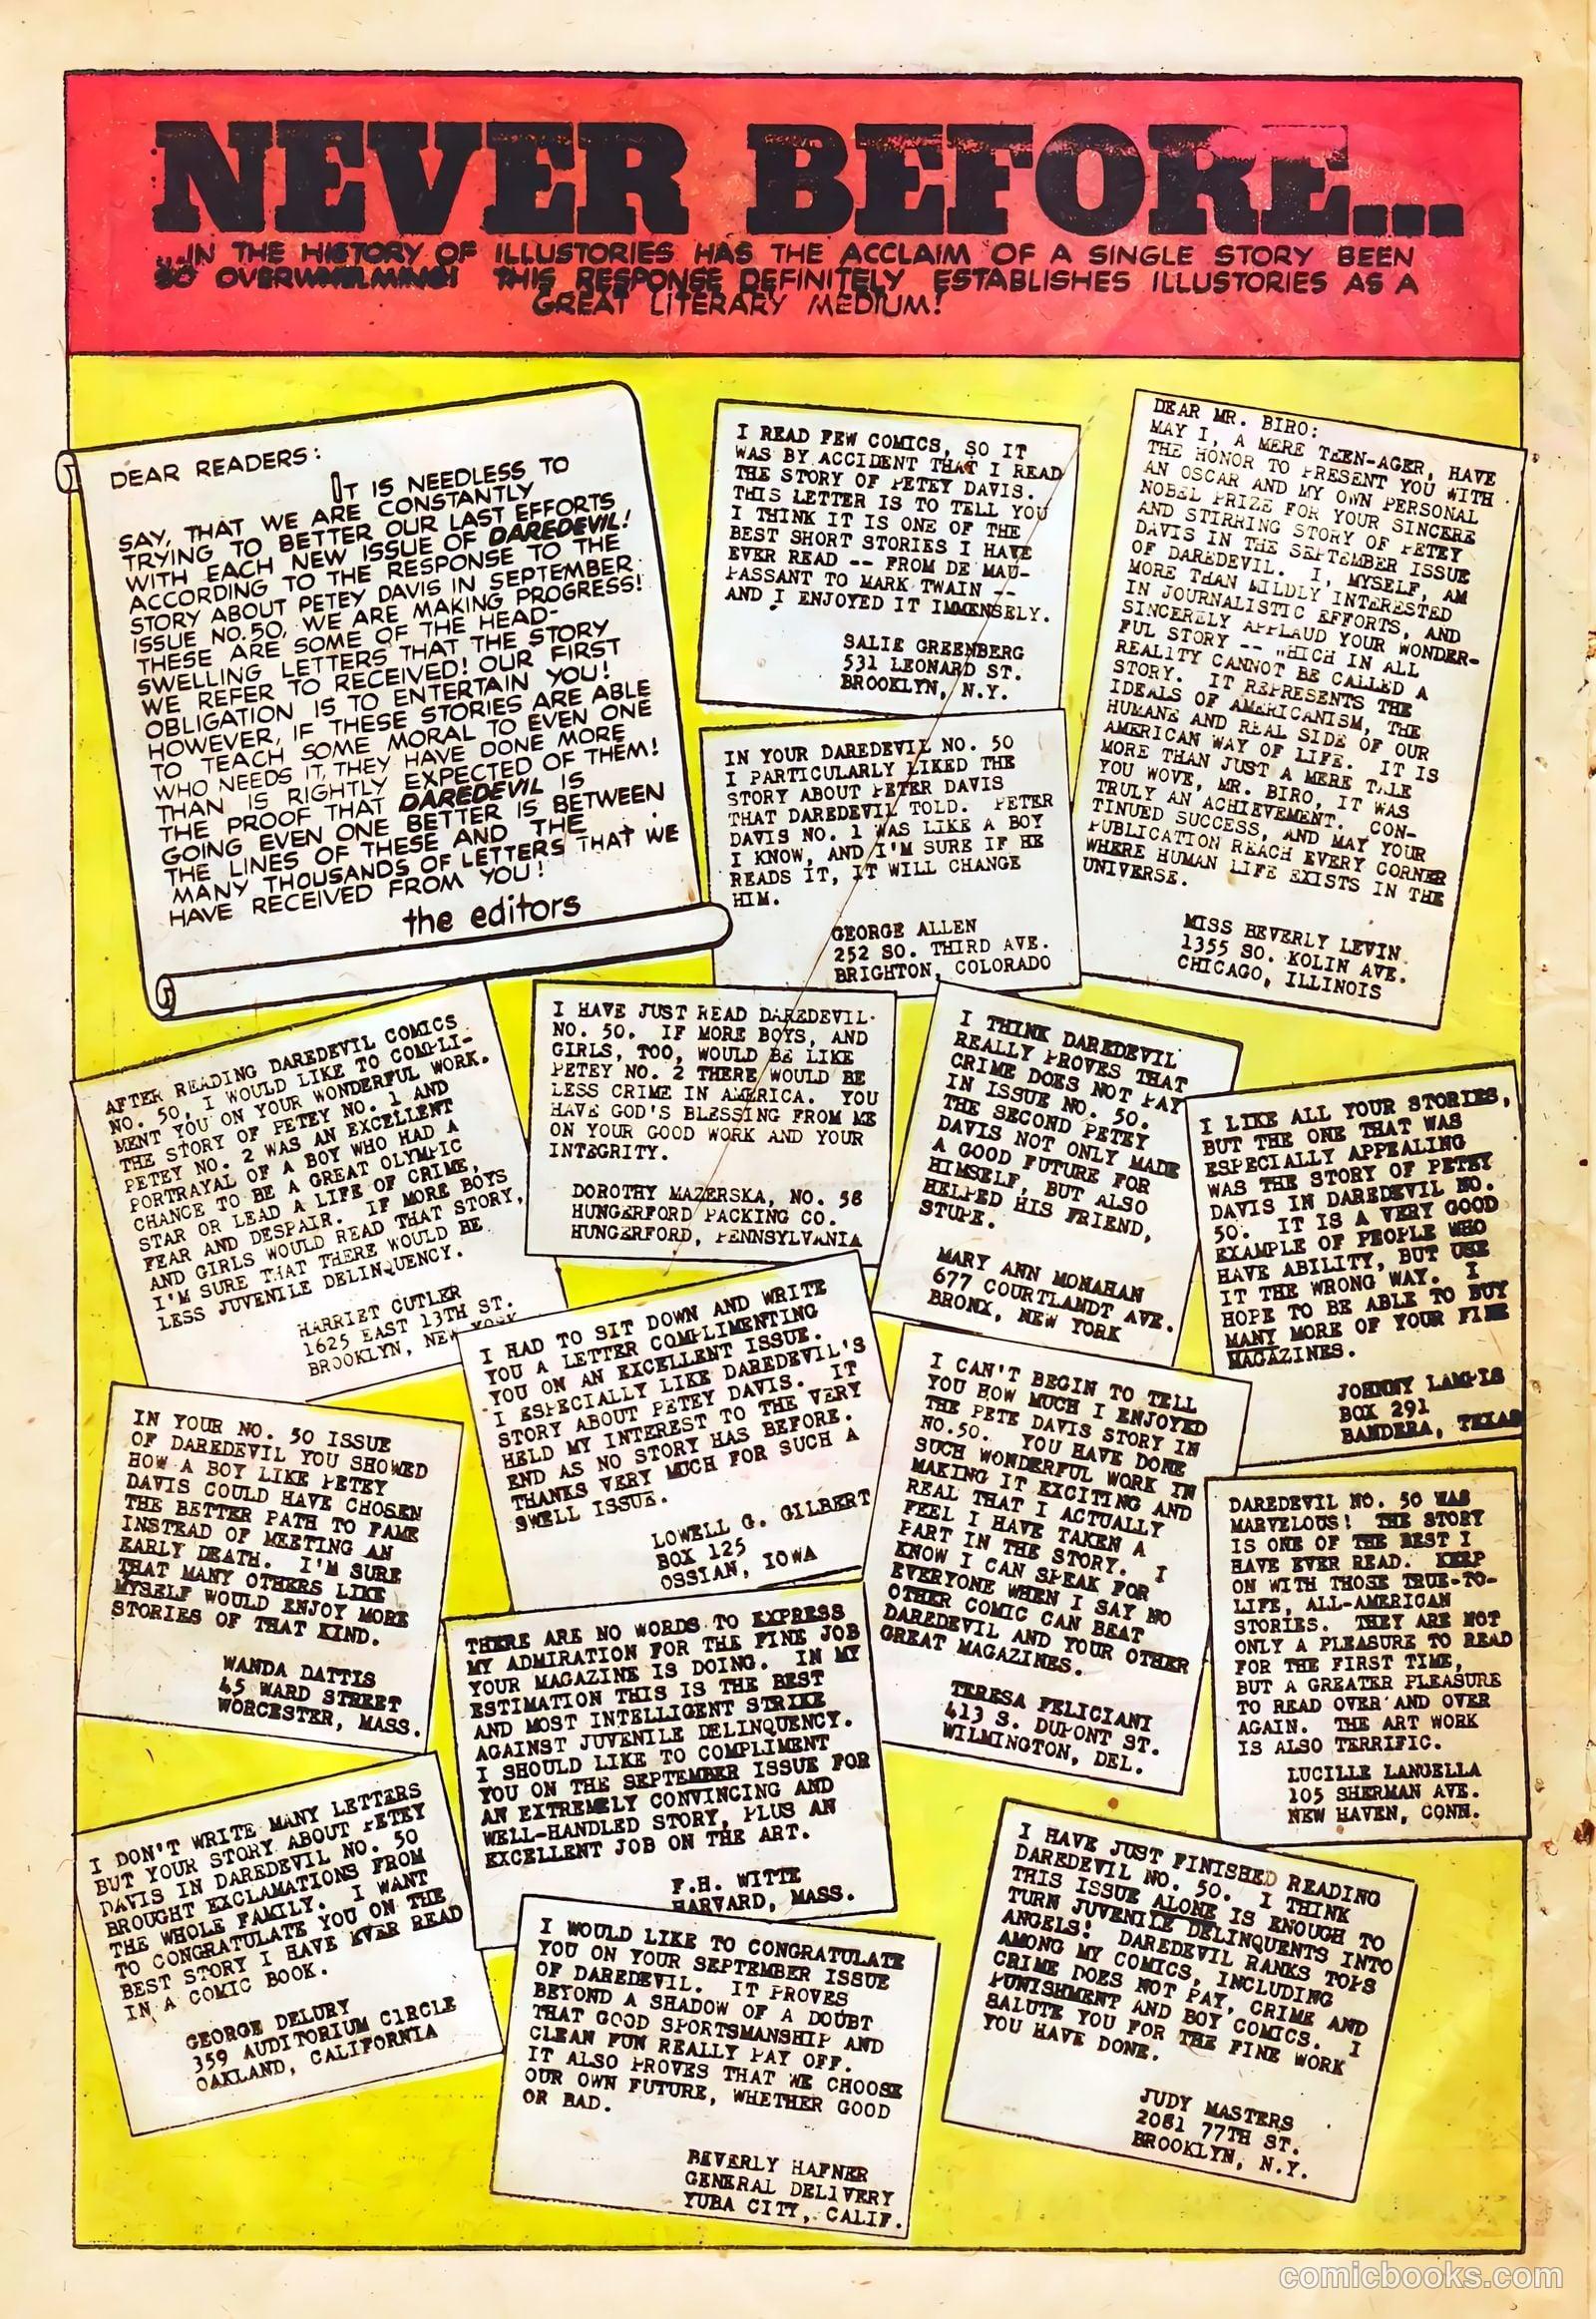 NEVER BEFORE...
...IN THE HISTORY OF ILLUSTORIES HAS THE ACCLAIM OF A SINGLE STORY BEEN
SO OVERWHELMING! THIS RESPONSE DEFINITELY ESTABLISHES ILLUSTORIES AS A
GREAT LITERARY MEDIUM!
DEAR READERS:
IT IS NEEDLESS TO
SAY, THAT WE ARE CONSTANTLY
TRYING TO BETTER OUR LAST EFFORTS
WITH EACH NEW ISSUE OF DAREDEVIL!
ACCORDING TO THE RESPONSE TO THE
STORY ABOUT PETEY DAVIS IN SEPTEMBER
ISSUE NO. 50, WE ARE MAKING PROGRESS!
THESE ARE SOME OF THE HEAD-
SWELLING LETTERS THAT THE STORY
WE REFER TO RECEIVED! OUR FIRST
OBLIGATION IS TO ENTERTAIN YOU!
HOWEVER, IF THESE STORIES ARE ABLE
TO TEACH SOME MORAL TO EVEN ONE
WHO NEEDS IT, THEY HAVE DONE MORE
THAN IS RIGHTLY EXPECTED OF THEM!
THE PROOF THAT DAREDEVIL IS
GOING EVEN ONE BETTER IS BETWEEN
THE LINES OF THESE AND THE
MANY THOUSANDS OF LETTERS THAT WE
HAVE RECEIVED FROM YOU!
the editors
I READ FEW COMICS, SO IT
WAS BY ACCIDENT THAT I READ
THE STORY OF PETEY DAVIS.
THIS LETTER IS TO TELL YOU
I THINK IT IS ONE OF THE
BEST SHORT STORIES I HAVE
EVER READ -- FROM DE MAU-
PASSANT TO MARK TWAIN --
AND I ENJOYED IT IMMENSELY.
SALIE GREENBERG
531 LEONARD ST.
BROOKLYN, N.Y.
DEAR MR. BIRO:
MAY I, A MERE TEEN-AGER, HAVE
THE HONOR TO PRESENT YOU WITH
AN OSCAR AND MY OWN PERSONAL
NOBEL PRIZE FOR YOUR SINCERE
AND STIRRING STORY OF PETEY
DAVIS IN THE SEPTEMBER ISSUE
OF DAREDEVIL. I, MYSELF, AM
MORE THAN MILDLY INTERESTED
IN JOURNALISTIC EFFORTS, AND
SINCERELY APPLAUD YOUR WONDER-
FUL STORY -- WHICH IN ALL
REALITY CANNOT BE CALLED A
STORY. IT REPRESENTS THE
IDEALS OF AMERICANISM, THE
HUMANE AND REAL SIDE OF OUR
AMERICAN WAY OF LIFE. IT IS
MORE THAN JUST A MERE TALE
YOU WOVE, MR. BIRO, IT WAS
TRULY AN ACHIEVEMENT. CON-
TINUED SUCCESS, AND MAY YOUR
PUBLICATION REACH EVERY CORNER
WHERE HUMAN LIFE EXISTS IN THE
UNIVERSE.
MISS BEVERLY LEVIN
1355 SO. KOLIN AVE.
CHICAGO, ILLINOIS
IN YOUR DAREDEVIL NO. 50
I PARTICULARLY LIKED THE
STORY ABOUT PETER DAVIS
THAT DAREDEVIL TOLD. PETER
DAVIS NO. 1 WAS LIKE A BOY
I KNOW, AND I'M SURE IF HE
READS IT, IT WILL CHANGE
HIM.
GEORGE ALLEN
252 SO. THIRD AVE.
BRIGHTON, COLORADO
AFTER READING DAREDEVIL COMICS
NO. 50, I WOULD LIKE TO COMPLI-
MENT YOU ON YOUR WONDERFUL WORK.
THE STORY OF PETEY NO. 1 AND
PETEY NO. 2 WAS AN EXCELLENT
PORTRAYAL OF A BOY WHO HAD A
CHANCE TO BE A GREAT OLYMPIC
STAR OR LEAD A LIFE OF CRIME,
FEAR AND DESPAIR. IF MORE BOYS
AND GIRLS WOULD READ THAT STORY,
I'M SURE THAT THERE WOULD BE
LESS JUVENILE DELINQUENCY.
HARRIET CUTLER
1625 EAST 13TH ST.
BROOKLYN, NEW YORK
I HAVE JUST READ DAREDEVIL
NO. 50. IF MORE BOYS, AND
GIRLS, TOO, WOULD BE LIKE
PETEY NO. 2 THERE WOULD BE
LESS CRIME IN AMERICA. YOU
HAVE GOD'S BLESSING FROM ME
ON YOUR GOOD WORK AND YOUR
INTEGRITY.
DOROTHY MAZERSKA, NO. 58
HUNGERFORD PACKING CO.
HUNGERFORD, PENNSYLVANIA
I THINK DAREDEVIL
REALLY PROVES THAT
CRIME DOES NOT PAY
IN ISSUE NO. 50.
THE SECOND PETEY
DAVIS NOT ONLY MADE
A GOOD FUTURE FOR
HIMSELF, BUT ALSO
HELPED HIS FRIEND,
STUPE.
MARY ANN MONAHAN
677 COURTLANDT AVE.
BRONX, NEW YORK
I LIKE ALL YOUR STORIES,
BUT THE ONE THAT WAS
ESPECIALLY APPEALING
WAS THE STORY OF PETEY
DAVIS IN DAREDEVIL NO.
50. IT IS A VERY GOOD
EXAMPLE OF PEOPLE WHO
HAVE ABILITY, BUT USE
IT THE WRONG WAY. I
HOPE TO BE ABLE TO BUY
MANY MORE OF YOUR FINE
MAGAZINES.
JOHNNY LAMPIS
BOX 291
BANDERA, TEXAS
I HAD TO SIT DOWN AND WRITE
YOU A LETTER COMPLIMENTING
YOU ON AN EXCELLENT ISSUE.
I ESPECIALLY LIKE DAREDEVIL'S
STORY ABOUT PETEY DAVIS. IT
HELD MY INTEREST TO THE VERY
END AS NO STORY HAS BEFORE.
THANKS VERY MUCH FOR SUCH A
SWELL ISSUE.
LOWELL G. GILBERT
BOX 125
OSSIAN, IOWA
I CAN'T BEGIN TO TELL
YOU HOW MUCH I ENJOYED
THE PETE DAVIS STORY IN
NO.50. YOU HAVE DONE
SUCH WONDERFUL WORK IN
MAKING IT EXCITING AND
REAL THAT I ACTUALLY
FEEL I HAVE TAKEN A
PART IN THE STORY. I
KNOW I CAN SPEAK FOR
EVERYONE WHEN I SAY NO
OTHER COMIC CAN BEAT
DAREDEVIL AND YOUR OTHER
GREAT MAGAZINES.
TERESA FELICIANI
413 S. DUPONT ST.
WILMINGTON, DEL.
IN YOUR NO. 50 ISSUE
OF DAREDEVIL YOU SHOWED
HOW A BOY LIKE PETEY
DAVIS COULD HAVE CHOSEN
THE BETTER PATH TO FAME
INSTEAD OF MEETING AN
EARLY DEATH. I'M SURE
THAT MANY OTHERS LIKE
MYSELF WOULD ENJOY MORE
STORIES OF THAT KIND.
WANDA DATTIS
45 WARD STREET
WORCESTER, MASS.
DAREDEVIL NO. 50 WAS
MARVELOUS! THE STORY
IS ONE OF THE BEST I
HAVE EVER READ. KEEP
ON WITH THOSE TRUE-TO-
LIFE, ALL-AMERICAN
STORIES. THEY ARE NOT
ONLY A PLEASURE TO READ
FOR THE FIRST TIME,
BUT A GREATER PLEASURE
TO READ OVER AND OVER
AGAIN. THE ART WORK
IS ALSO TERRIFIC.
LUCILLE LANGELLA
105 SHERMAN AVE.
NEW HAVEN, CONN.
THERE ARE NO WORDS TO EXPRESS
MY ADMIRATION FOR THE FINE JOB
YOUR MAGAZINE IS DOING. IN MY
ESTIMATION THIS IS THE BEST
AND MOST INTELLIGENT STRIKE
AGAINST JUVENILE DELINQUENCY.
I SHOULD LIKE TO COMPLIMENT
YOU ON THE SEPTEMBER ISSUE FOR
AN EXTREMELY CONVINCING AND
WELL-HANDLED STORY, PLUS AN
EXCELLENT JOB ON THE ART.
F.H. WITTE
HARVARD, MASS.
I DON'T WRITE MANY LETTERS
BUT YOUR STORY ABOUT PETEY
DAVIS IN DAREDEVIL NO. 50
BROUGHT EXCLAMATIONS FROM
THE WHOLE FAMILY. I WANT
TO CONGRATULATE YOU ON THE
BEST STORY I HAVE EVER READ
IN A COMIC BOOK.
GEORGE DELURY
359 AUDITORIUM CIRCLE
OAKLAND, CALIFORNIA
I WOULD LIKE TO CONGRATULATE
YOU ON YOUR SEPTEMBER ISSUE
OF DAREDEVIL. IT PROVES
BEYOND A SHADOW OF A DOUBT
THAT GOOD SPORTSMANSHIP AND
CLEAN FUN REALLY PAY OFF.
IT ALSO PROVES THAT WE CHOOSE
OUR OWN FUTURE, WHETHER GOOD
OR BAD.
BEVERLY HAFNER
GENERAL DELIVERY
YUBA CITY, CALIF.
I HAVE JUST FINISHED READING
DAREDEVIL NO. 50. I THINK
THIS ISSUE ALONE IS ENOUGH TO
TURN JUVENILE DELINQUENTS INTO
ANGELS! DAREDEVIL RANKS TOPS
AMONG MY COMICS, INCLUDING
CRIME DOES NOT PAY, CRIME AND
PUNISHMENT AND BOY COMICS. I
SALUTE YOU FOR THE FINE WORK
YOU HAVE DONE.
JUDY MASTERS
2081 77TH ST.
BROOKLYN, N.Y.
comicbooks.com